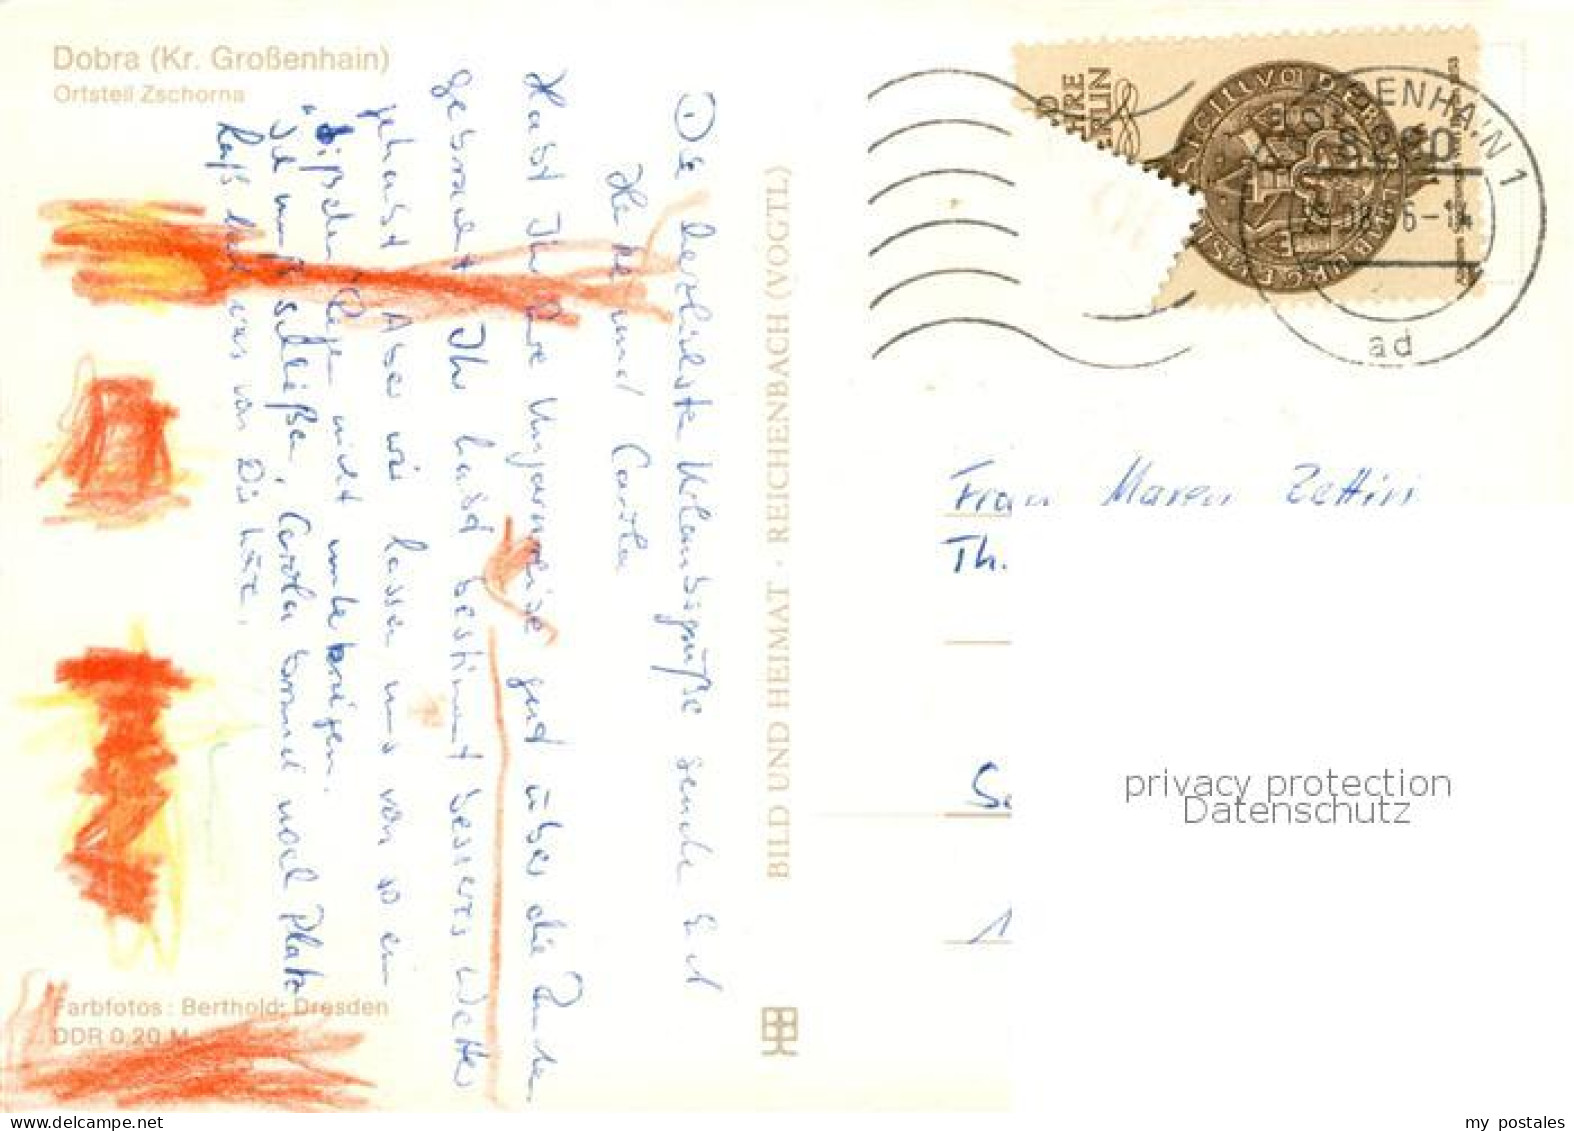 Dobra (Kr. Großenhain)
Ortsteil Zschorna
Die herzlichsten Urlaubsgrüße sendet Euch
Heike und Carola
Habt Ihr Eure Ungarnreise gut über die Runden
gebracht. Ihr habt bestimmt besseres Wetter
gehabt. Aber wir lassen uns von so ein
"bißchen" Regen nicht unterkriegen.
Ich muß schließen, Carola braucht noch Platz
Laß mal was von Dir hören.
Farbfotos: Berthold, Dresden
DDR 0,20 M
BILD UND HEIMAT · REICHENBACH (VOGTL)
JAHRE
BERLIN
SENHAIN 1
8280
-14
ad
Frau Maren
Th.
privacy protection
Datenschutz
www.ansichtskartenversand.com
my postales